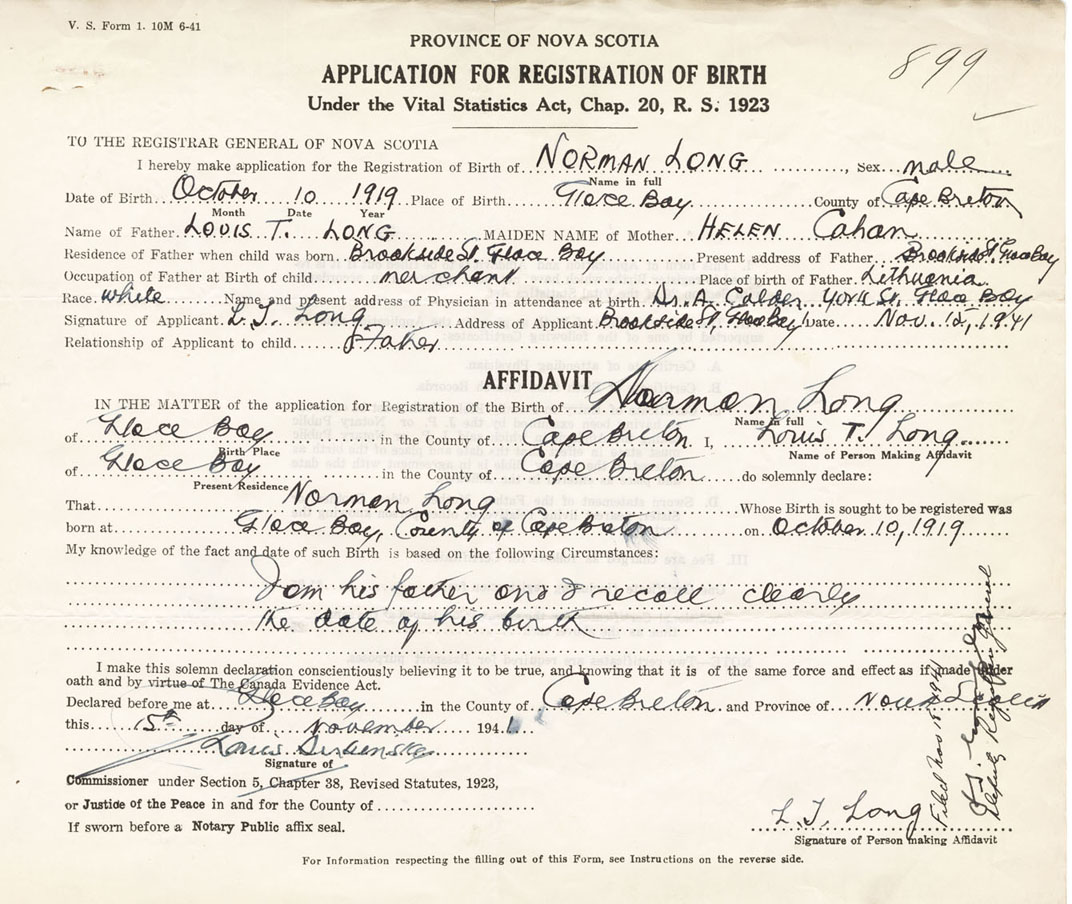 V. S. Form 1. 10M 6-41
899
PROVINCE OF NOVA SCOTIA
APPLICATION FOR REGISTRATION OF BIRTH
Under the Vital Statistics Act, Chap. 20, R. S. 1923
TO THE REGISTRAR GENERAL OF NOVA SCOTIA
I hereby make application for the Registration of Birth of NORMAN LONG, Sex male
Name in full
Date of Birth October 10 1919 Place of Birth Glace Bay County of Cape Breton
Month Date Year
Name of Father LOUIS T. LONG MAIDEN NAME of Mother HELEN Cahan
Residence of Father when child was born Brookside St. Glace Bay Present address of Father Brookside St. Glace Bay
Occupation of Father at Birth of child merchant Place of birth of Father Lithuania
Race white Name and present address of Physician in attendance at birth Dr. A. Calder York St. Glace Bay
Signature of Applicant L. T. Long Address of Applicant Brookside St, Glace Bay Date Nov. 15, 1941
Relationship of Applicant to child Father
AFFIDAVIT
IN THE MATTER of the application for Registration of the Birth of Norman Long
Name in full
of Glace Bay in the County of Cape Breton I, Louis T. Long
Birth Place Name of Person Making Affidavit
of Glace Bay in the County of Cape Breton do solemnly declare:
Present Residence
That Norman Long Whose Birth is sought to be registered was
born at Glace Bay, County of Cape Breton on October 10, 1919
My knowledge of the fact and date of such Birth is based on the following Circumstances:
I am his father and I recall clearly
the date of his birth
I make this solemn declaration conscientiously believing it to be true, and knowing that it is of the same force and effect as if made under
oath and by virtue of The Canada Evidence Act.
Declared before me at Glace Bay in the County of Cape Breton and Province of Nova Scotia
this 15th day of November 1941
Louis
Signature of
Commissioner under Section 5, Chapter 38, Revised Statutes, 1923,
or Justice of the Peace in and for the County of
If sworn before a Notary Public affix seal.
L. T. Long
Signature of Person making Affidavit
For Information respecting the filling out of this Form, see Instructions on the reverse side.
Filed Nov 18 1941
Deputy Registrar General